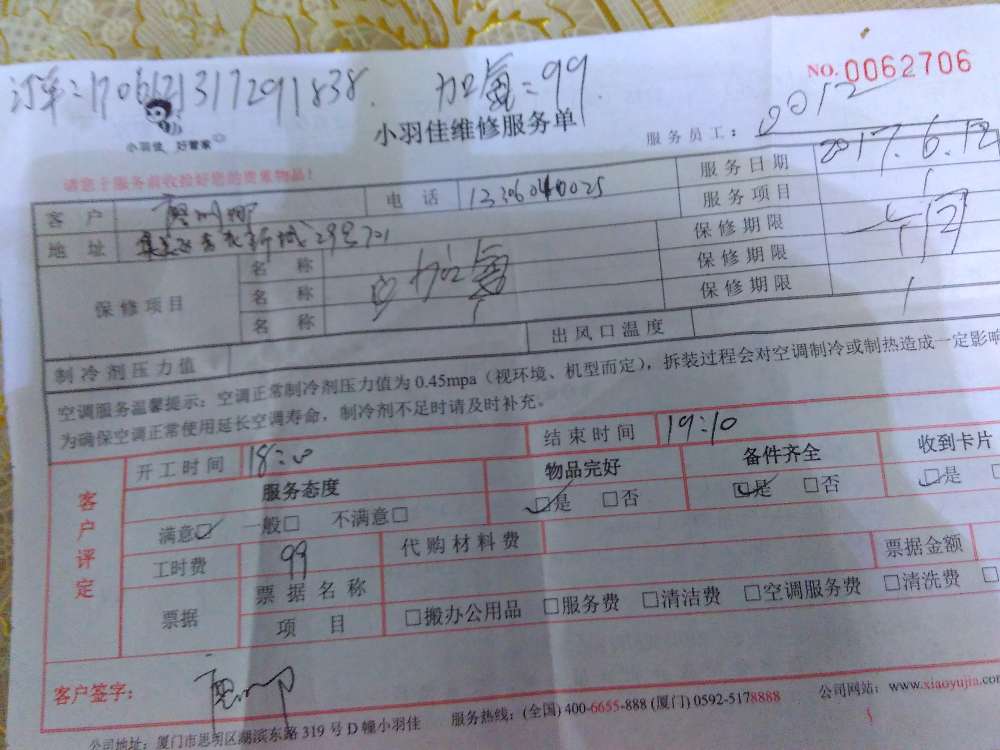 NO.0062706
订单:170612131729183​8. 加氟=99
小羽佳 好管家
小羽佳维修服务单
服务员工: 2012
请您于服务前收捡好您的贵重物品!
服务日期 2017.6.12
客 户 电 话 13306040025 服务项目
地 址 新城29号701 保修期限
保修项目 名 称 加氟 保修期限
名 称 保修期限
名 称
制冷剂压力值 出风口温度
空调服务温馨提示:空调正常制冷剂压力值为 0.45mpa(视环境、机型而定),拆装过程会对空调制冷或制热造成一定影响
为确保空调正常使用延长空调寿命,制冷剂不足时请及时补充。
客户评定 开工时间 18:00 结束时间 19:10
服务态度 物品完好 备件齐全 收到卡片
满意☑ 一般□ 不满意□ ☑是 □否 ☑是 □否 ☑是
工时费 99 代购材料费 票据金额
票据 票 据 名 称
项 目 □搬办公用品 □服务费 □清洁费 □空调服务费 □清洗费
客户签字:
公司地址:厦门市思明区湖滨东路 319 号 D 幢小羽佳 服务热线:(全国) 400-6655-888 (厦门) 0592-5178888 公司网站:www.xiaoyujia.com